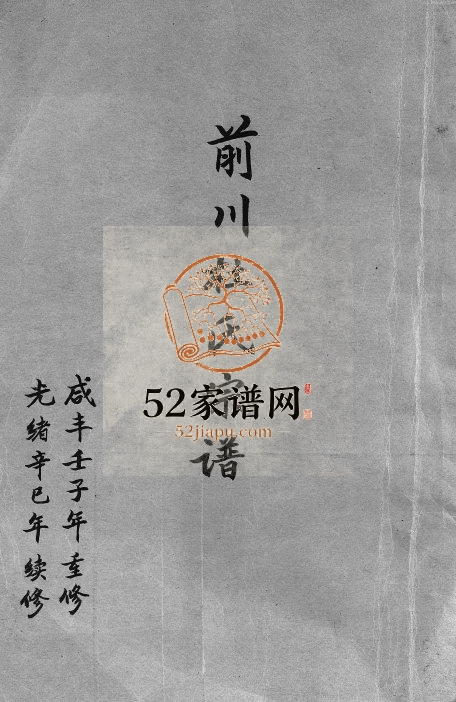 前川
氏
谱
咸丰壬子年重修
光绪辛巳年续修
52家谱网
52jiapu.com